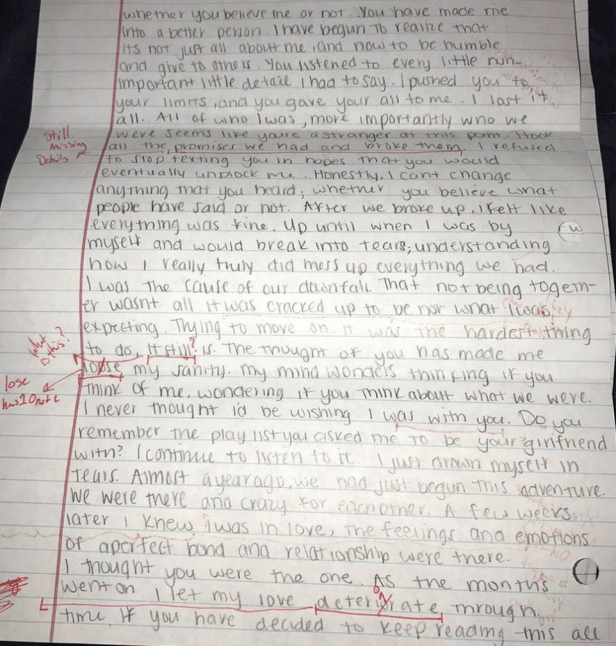 whether you believe me or not. You have made me
into a better person. I have begun to realize that
its not just all about me, and now to be humble
and give to others. You listened to every little non-
important little detail I had to say. I pushed you to
your limits, and you gave your all to me. I lost it
all. All of who I was, more importantly who we
were seems like youre a stranger at this point. I took
all the promises we had and broke them. I refused
to stop texting you in hopes that you would
eventually unblock me. Honestly, I cant change
anything that you heard, whether you believe what
people have said or not. After we broke up, i felt like
everything was fine. Up until when I was by
myself and would break into tears, understanding
how I really truly did mess up everything we had.
I was the cause of our downfall. That not being togeth-
er wasnt all it was cracked up to be nor what I was
expecting. Trying to move on. It was the hardest thing
to do, it still is. The thought of you has made me
loose my sanity. my mind wonders thinking if you
think of me. wondering if you think about what we were.
I never thought id be wishing I was with you. Do you
remember the play list you asked me to be your girlfriend
with? I continue to listen to it. I just drown myself in
tears. Almost a year ago, we had just begun this adventure.
We were there and crazy for eachother. A few weeks
later I knew i was in love, the feelings and emotions
of a perfect bond and relationship were there.
I thought you were the one. As the months
went on I let my love deteriorate through
time. If you have decided to keep reading this all
Still
Missing
Details
W
what
is this?
?
lose
has 1 0 not 2